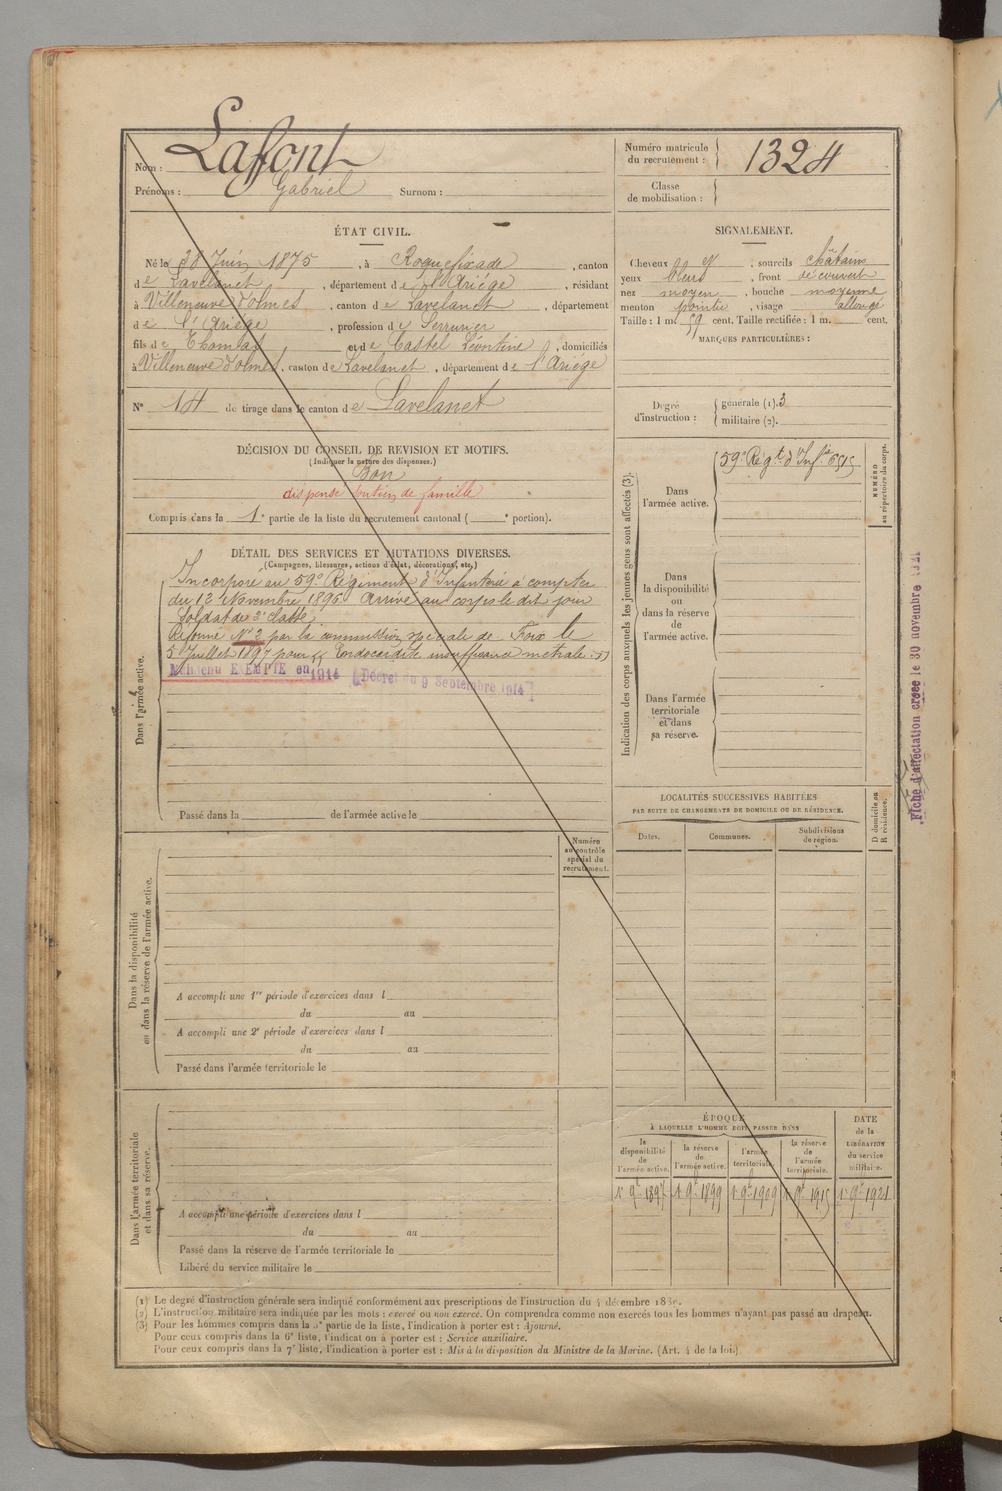 Nom : Lafont
Prénoms : Gabriel Surnom :
Numéro matricule du recrutement : 1324
Classe de mobilisation :
ÉTAT CIVIL.
Né le 28 Juin 1875, à Roquefixade, canton
de Lavelanet, département de l'Ariége, résidant
à Villeneuve d'olmes, canton de Lavelanet, département
de l'Ariége, profession de Serrurier
fils de Thomas et de Castel Léontine, domiciliés
à Villeneuve d'olmes, canton de Lavelanet, département de l'Ariége
N° 14 de tirage dans le canton de Lavelanet
SIGNALEMENT.
Cheveux N, sourcils châtains
yeux bleus, front découvert
nez moyen, bouche moyenne
menton pointu, visage allongé
Taille : 1 m. 59 cent. Taille rectifiée : 1 m. cent.
MARQUES PARTICULIÈRES :
Degré d'instruction : générale (1). 3
militaire (2).
DÉCISION DU CONSEIL DE REVISION ET MOTIFS.
(Indiquer la nature des dispenses.)
Bon
dispensé soutien de famille
Compris dans la 1e partie de la liste du recrutement cantonal ( e portion).
DÉTAIL DES SERVICES ET MUTATIONS DIVERSES.
(Campagnes, blessures, actions d'éclat, décorations, etc.)
Dans l'armée active.
Incorporé au 59e Régiment d'Infanterie à compter
du 12 Novembre 1896 Arrivé au corps le dit jour
Soldat de 2e classe
Réformé N° 2 par la commission spéciale de Foix le
5 Juillet 1897 pour "Endocardite insuffisance mitrale"
Maintenu EXEMPTÉ en 1914 [Décret du 9 Septembre 1914]
Passé dans la de l'armée active le
Indication des corps auxquels les jeunes gens sont affectés (3).
Dans l'armée active.
59e Régt d'Infie 6515
NUMÉRO au répertoire du corps.
Dans la disponibilité ou dans la réserve de l'armée active.
Dans l'armée territoriale et dans sa réserve.
Fiche d'affectation créée le 30 novembre 1921
LOCALITÉS SUCCESSIVES HABITÉES
PAR SUITE DE CHANGEMENTS DE DOMICILE OU DE RÉSIDENCE.
Dates. Communes. Subdivisions de région. D domicile ou R résidence.
Dans la disponibilité ou dans la réserve de l'armée active.
Numéro au contrôle spécial du recrutement.
A accompli une 1re période d'exercices dans l
du au
A accompli une 2e période d'exercices dans l
du au
Passé dans l'armée territoriale le
Dans l'armée territoriale et dans sa réserve.
A accompli une période d'exercices dans l
du au
Passé dans la réserve de l'armée territoriale le
Libéré du service militaire le
ÉPOQUE
À LAQUELLE L'HOMME DOIT PASSER DANS
la disponibilité de l'armée active. la réserve de l'armée active. l'armée territoriale. la réserve de l'armée territoriale. DATE de la LIBÉRATION du service militaire.
1er 9bre 1897 1er 9bre 1899 1er 9bre 1909 1er 9bre 1915 1er 9bre 1921
(1) Le degré d'instruction générale sera indiqué conformément aux prescriptions de l'instruction du 4 décembre
(2) L'instruction militaire sera indiquée par les mots : exercé ou non exercé. On comprendra comme non exercés tous les hommes n'ayant pas passé au drapeau.
(3) Pour les hommes compris dans la partie de la liste, l'indication à porter est : Ajourné.
Pour ceux compris dans la 6e liste, l'indication à porter est : Service auxiliaire.
Pour ceux compris dans la 7e liste, l'indication à porter est : Mis à la disposition du Ministre de la Marine. (Art. 4 de la loi.)